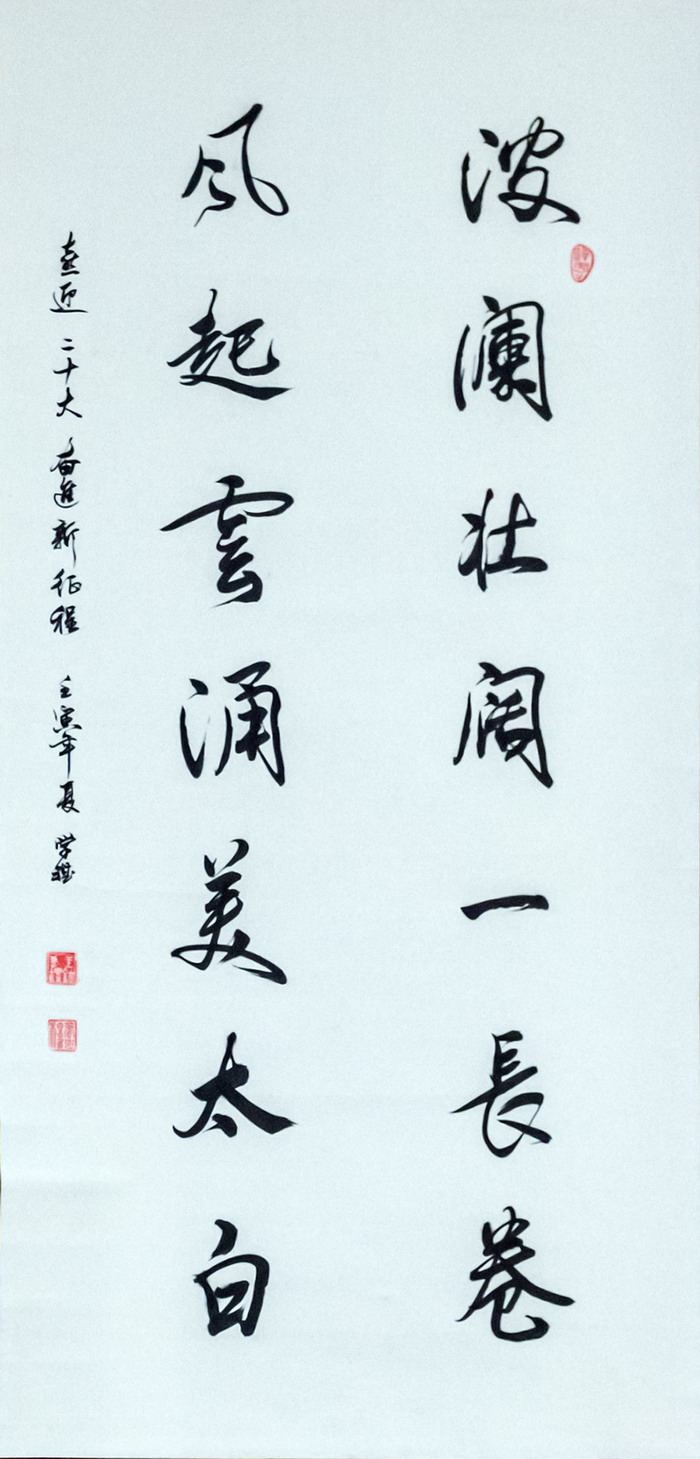 波澜壮阔一長卷
风起雲涌美太白
喜迎二十大奋進新征程 壬寅年夏 学